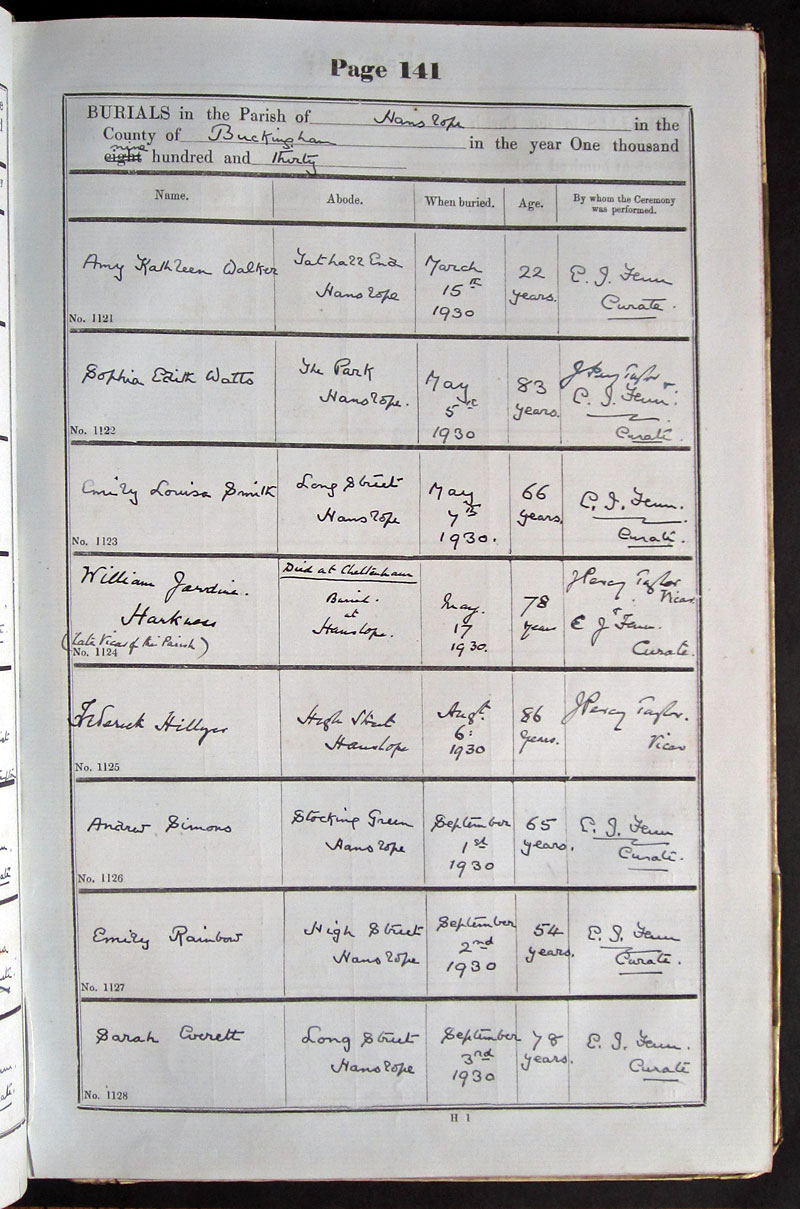 Page 141
BURIALS in the Parish of Hanslope in the
County of Buckingham in the year One thousand
nine
eight hundred and thirty
Name. Abode. When buried. Age. By whom the Ceremony was performed.
Amy Kathleen Walker
No. 1121
Tathall End
Hanslope
March
15th
1930
22
years.
E. J. Fenn
Curate.
Sophia Edith Watts
No. 1122
The Park
Hanslope.
May
5th
1930
83
years.
J Percy Taylor &
E. J. Fenn.
Curate.
Emily Louisa Smith
No. 1123
Long Street
Hanslope
May
7th
1930.
66
years.
E. J. Fenn.
Curate.
William Jardine.
Harkness
(Late Vicar of the Parish)
No. 1124
Died at Cheltenham
Buried.
at
Hanslope.
May.
17
1930.
78
years
J Percy Taylor
Vicar
E J Fenn.
Curate.
Frederick Hillyer
No. 1125
High Street
Hanslope
Augt.
6:
1930
86
Years.
J Percy Taylor.
Vicar
Andrew Simons
No. 1126
Stocking Green
Hanslope
September
1st
1930
65
years.
E. J. Fenn
Curate.
Emily Rainbow
No. 1127
High Street
Hanslope
September
2nd
1930
54
years.
E. J. Fenn
Curate.
Sarah Everett
No. 1128
Long Street
Hanslope
September
3rd
1930
78
years.
E. J. Fenn.
Curate
H 1